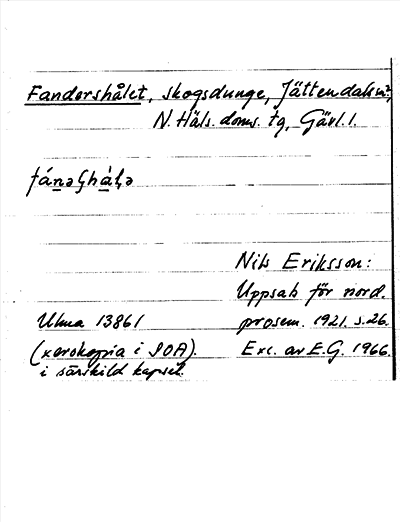 Fandershålet, skogsdunge, Jättendals sn,
N. Häls. doms. tg, Gävl. l.
Nils Eriksson:
Uppsats för nord.
Ulma 13861 prosem. 1921. s. 26.
(xerokopia i SOA). Exc. av E.G. 1966.
i särskild kapsel.